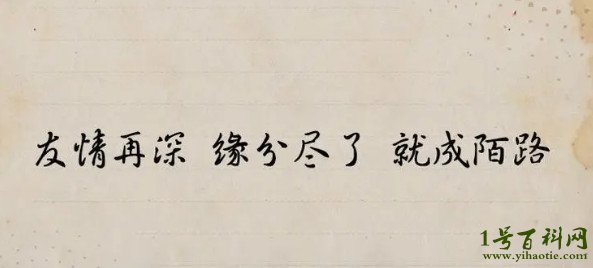 友情再深 缘分尽了 就成陌路
1号百科网
www.yihaotie.com